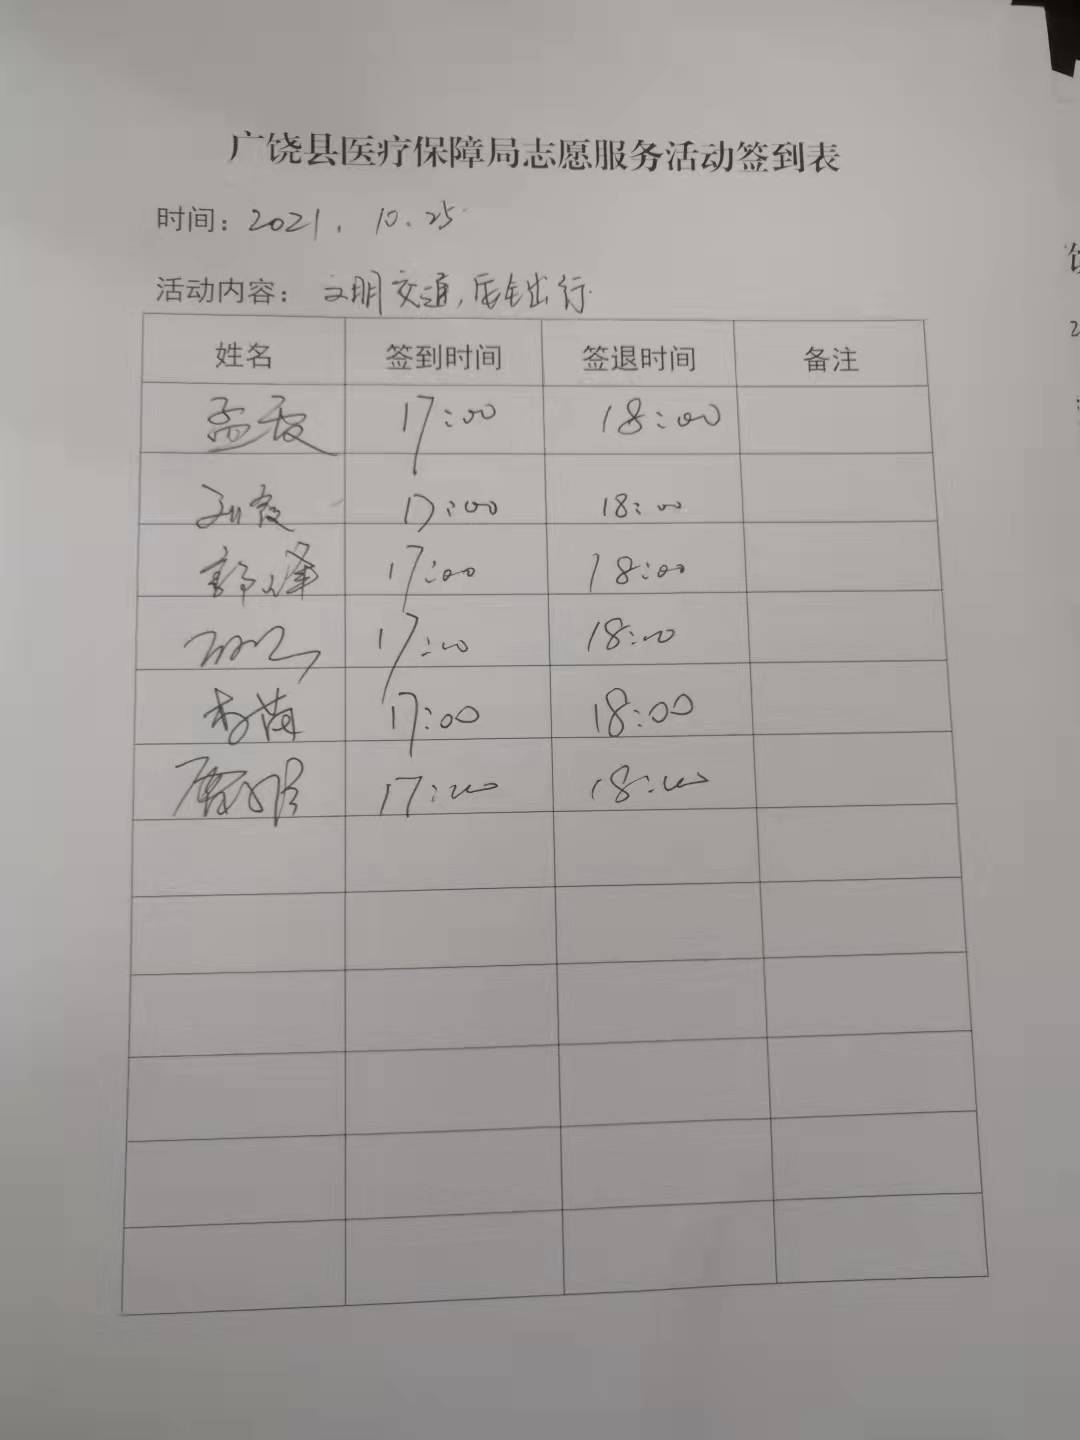 广饶县医疗保障局志愿服务活动签到表
时间：2021.10.25
活动内容：文明交通,安全出行
姓名 签到时间 签退时间 备注
17:00 18:00
17:00 18:00
17:00 18:00
17:00 18:00
17:00 18:00
17:00 18:00